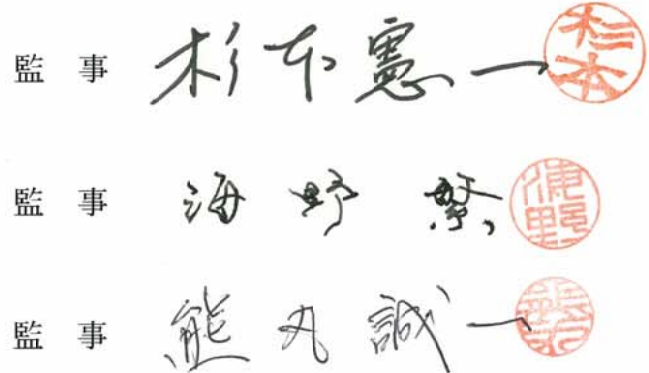 監事 杉本憲一 杉本
監事 海野繁 海野
監事 熊丸誠一